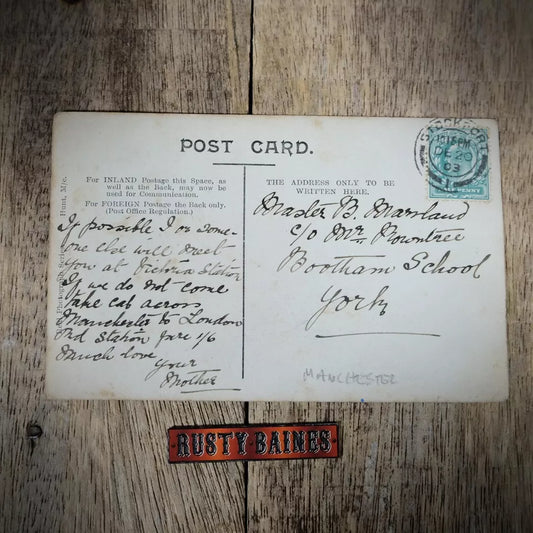 POST CARD.
For INLAND Postage this Space, as
well as the Back, may now be
used for Communication.
For FOREIGN Postage the Back only.
(Post Office Regulation.)
THE ADDRESS ONLY TO BE
WRITTEN HERE.
Hunt, M/c.
If possible I or some-
one else will meet
you at Victoria Station
If we do not come
take cab across
Manchester to London
Rd Station fare 1/6
Much love
Your
Mother
Master B. Marsland
c/o Mr. Rowntree
Bootham School
York
STOCKPORT
20
03
HALFPENNY
MANCHESTER
RUSTY BAINES